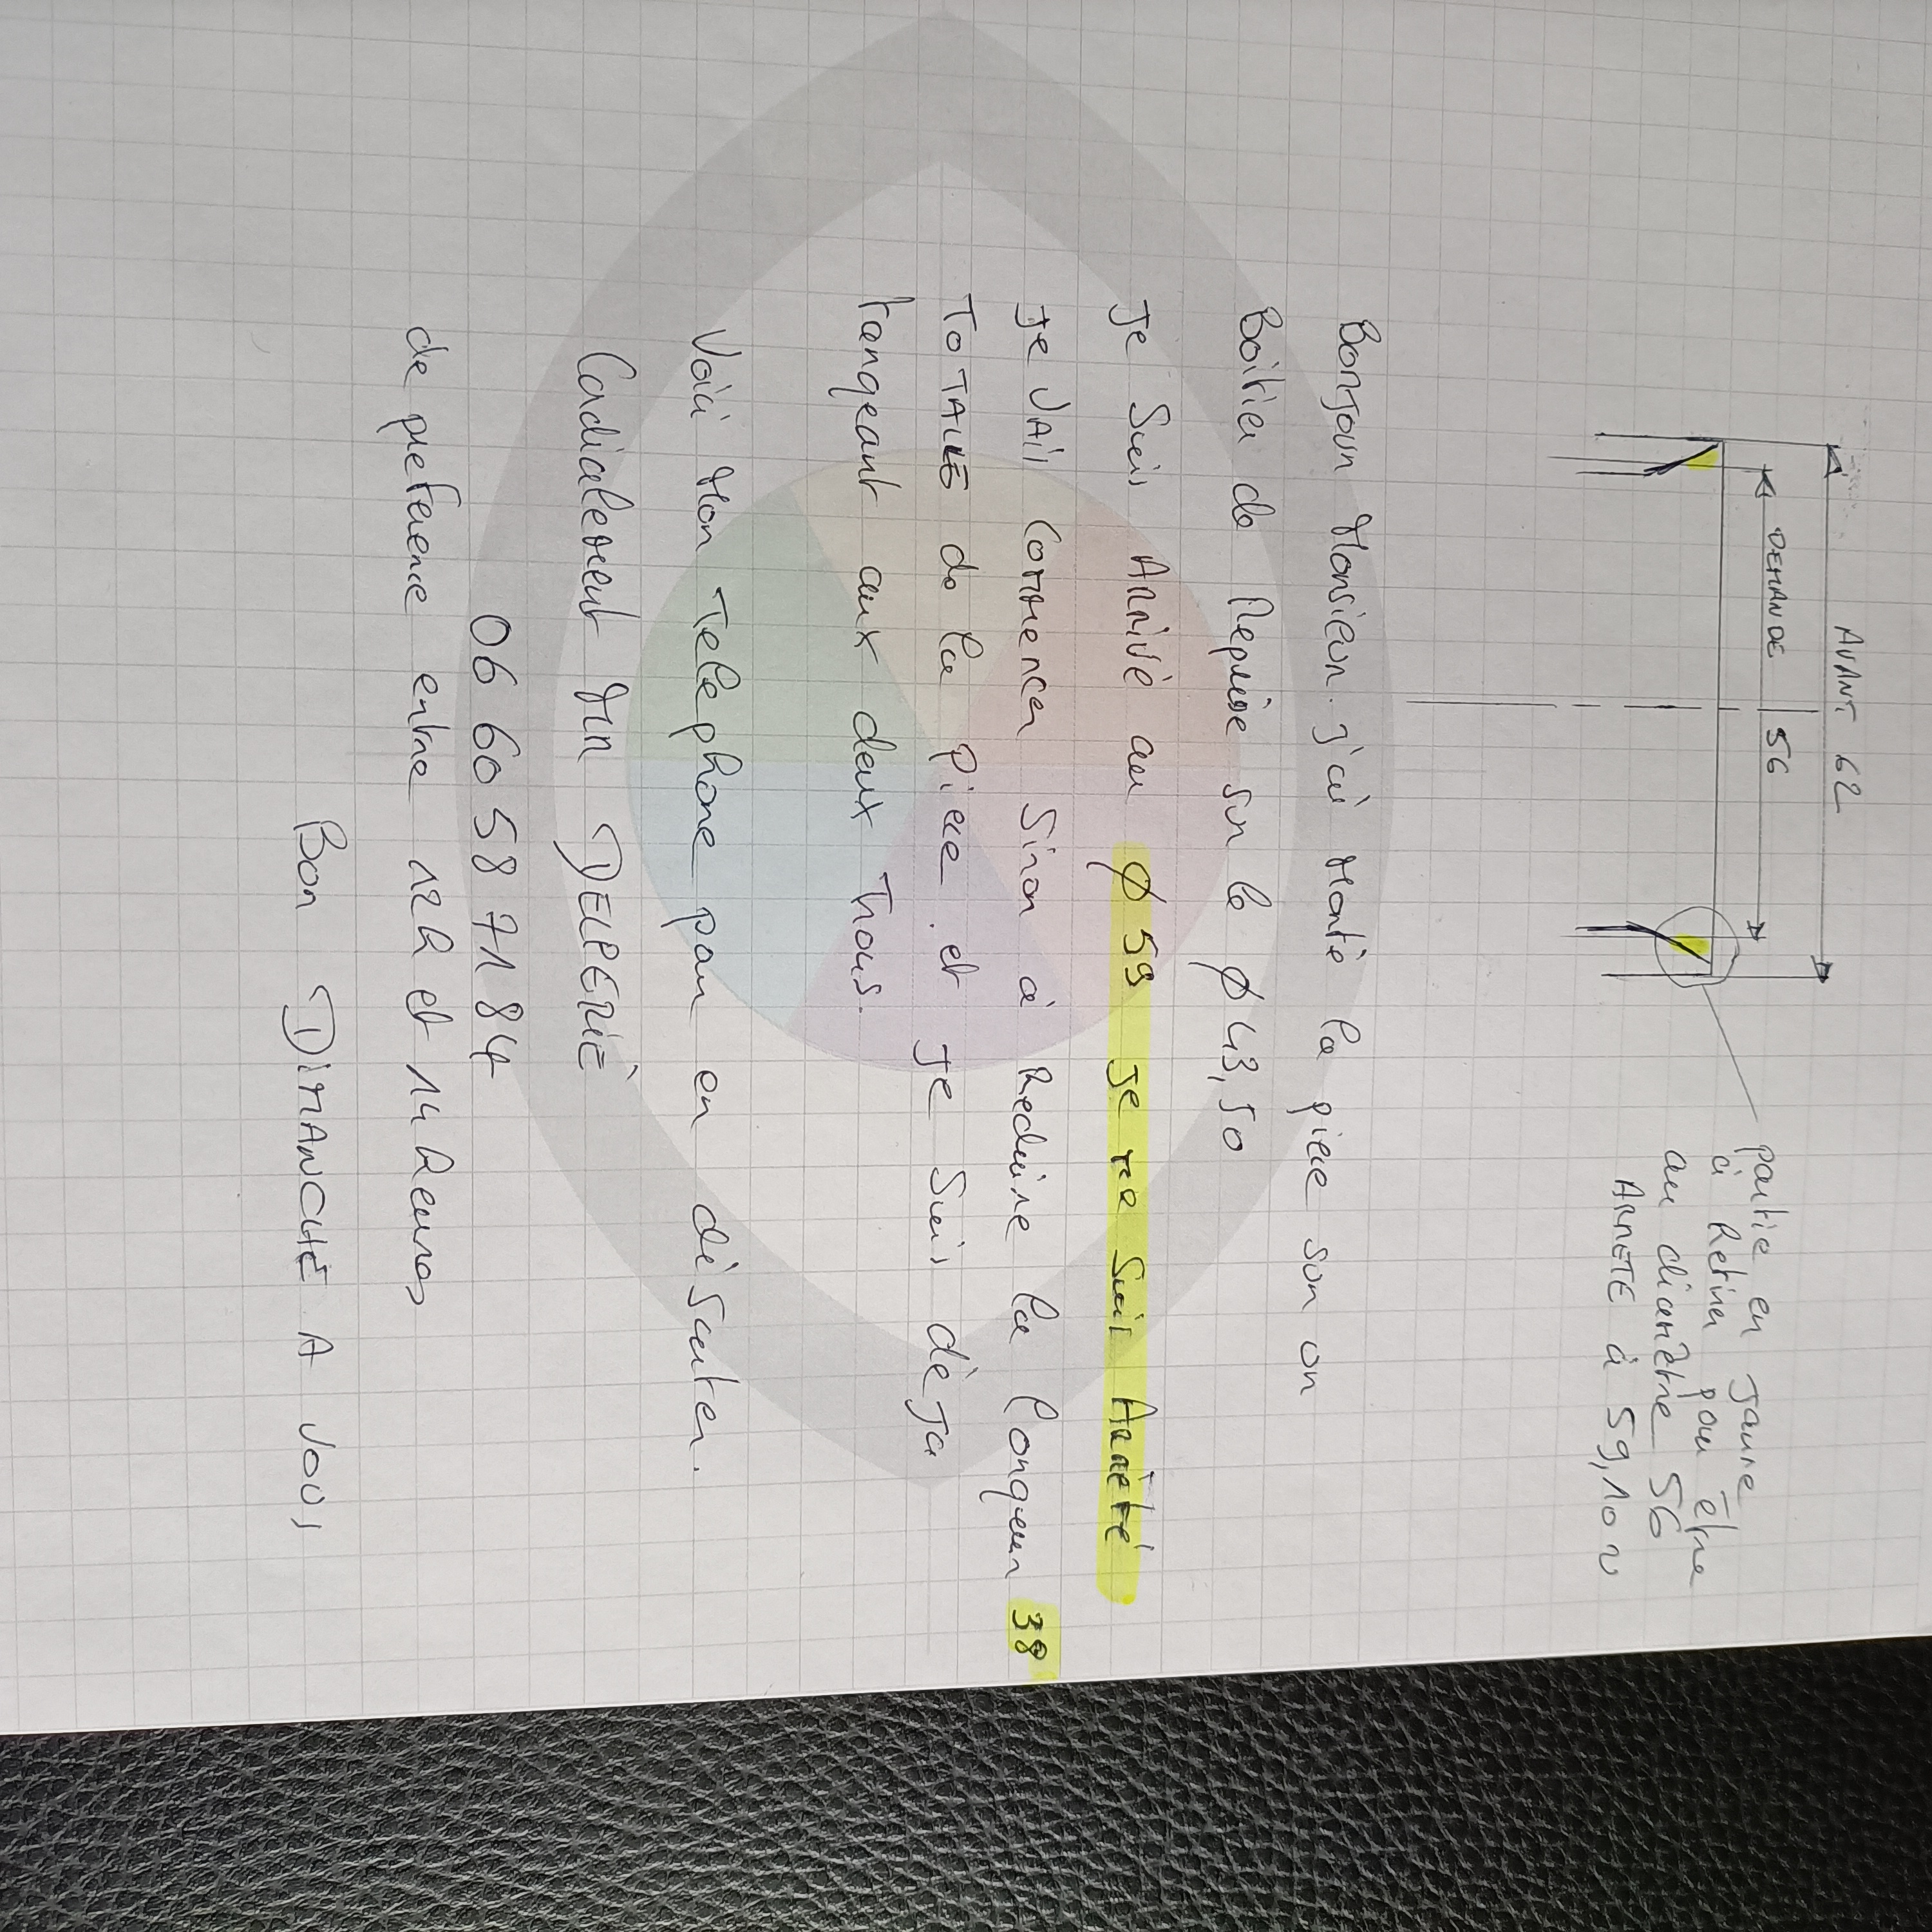 AVANT 62
DEMANDE 56
partie en Jaune
à Retirer pour être
au diamètre 56
ARRETE à 59,10 N
BONJOUR Monsieur. j'ai Monté la piece son on
Boitier de Reprise sur le Ø 43,50
Je Suis Arrivé au Ø 59 je me Suis Arrèté
Je VAIS Commencer Sinon à Reduire la Longueur 38
TOTALE de la piece. et Je Suis déJa
tangeant aux deux Trous.
Voici Mon Telephone pour en discuter.
Cordialement Mr DELPERIÉ
06 60 58 71 84
de preference entre 12h et 14 heures
Bon DIMANCHE A VOUS